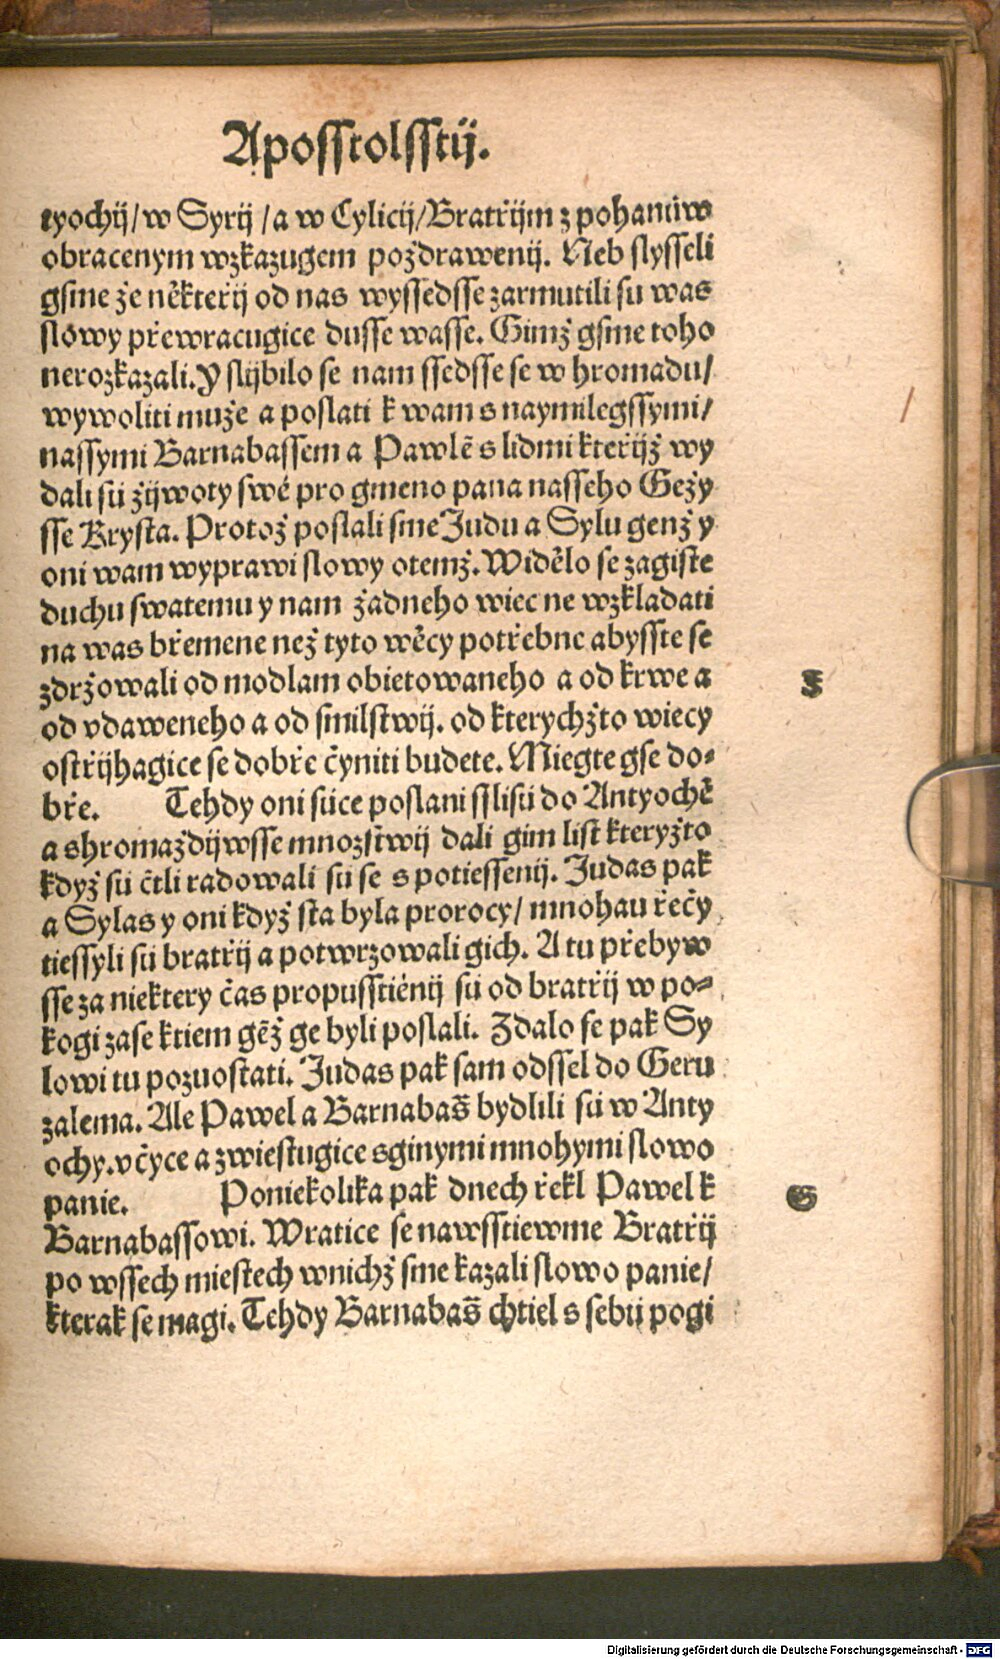 Aposstolsstij.
tyochij/w Syrij /a w Cylicij/Bratřijm z pohanůw
obracenym wzkazugem pozdrawenij. Neb slysseli
gsme že někteřij od nas wyssedsse zarmutili su was
slowy přewracugice dusse wasse. Gimž gsme toho
nerozkazali. Y slijbilo se nam ssedsse se w hromadu/
wywoliti muže a poslati k wam s naymilegssymi/
nassymi Barnabassem a Pawlē s lidmi kteřijž wy
dali sú žijwoty swé pro gmeno pana nasseho Gežy
sse Krysta. Protož poslali sme Judu a Sylu genž y
oni wam wyprawi slowy otemž. Widělo se zagiste
duchu swatemu y nam žadneho wiec ne wzkladati
na was břemene než tyto wěcy potřebne abysste se
zdržowali od modlam obietowaneho a od krwe a
od vdaweneho a od smilstwij. od kterychžto wiecy
ostřijhagice se dobře čyniti budete. Miegte gse do⸗
bře. Tehdy oni súce poslani sslisú do Antyochě
a shromaždijwsse mnozstwij dali gim list kteryžto
když sú čtli radowali sú se s potiessenij. Judas pak
a Sylas y oni když sta byla prorocy/ mnohau řečy
tiessyli sú bratřij a potwrzowali gich. A tu přebyw
sse za niektery čas propusstiénij sú od bratřij w po⸗
kogi zase ktiem gēž ge byli poslali. Zdalo se pak Sy
lowi tu pozuostati. Judas pak sam odssel do Geru
zalema. Ale Pawel a Barnabas̄ bydlili sú w Anty
ochy. včyce a zwiestugice sginymi mnohymi slowo
panie. Poniekolika pak dnech řekl Pawel k
Barnabassowi. Wratice se nawsstiewme Bratřij
po wssech miestech wnichž sme kazali slowo panie/
kterak se magi. Tehdy Barnabas̄ chtiel s sebú pogi
G
Digitalisierung gefördert durch die Deutsche Forschungsgemeinschaft - DFG